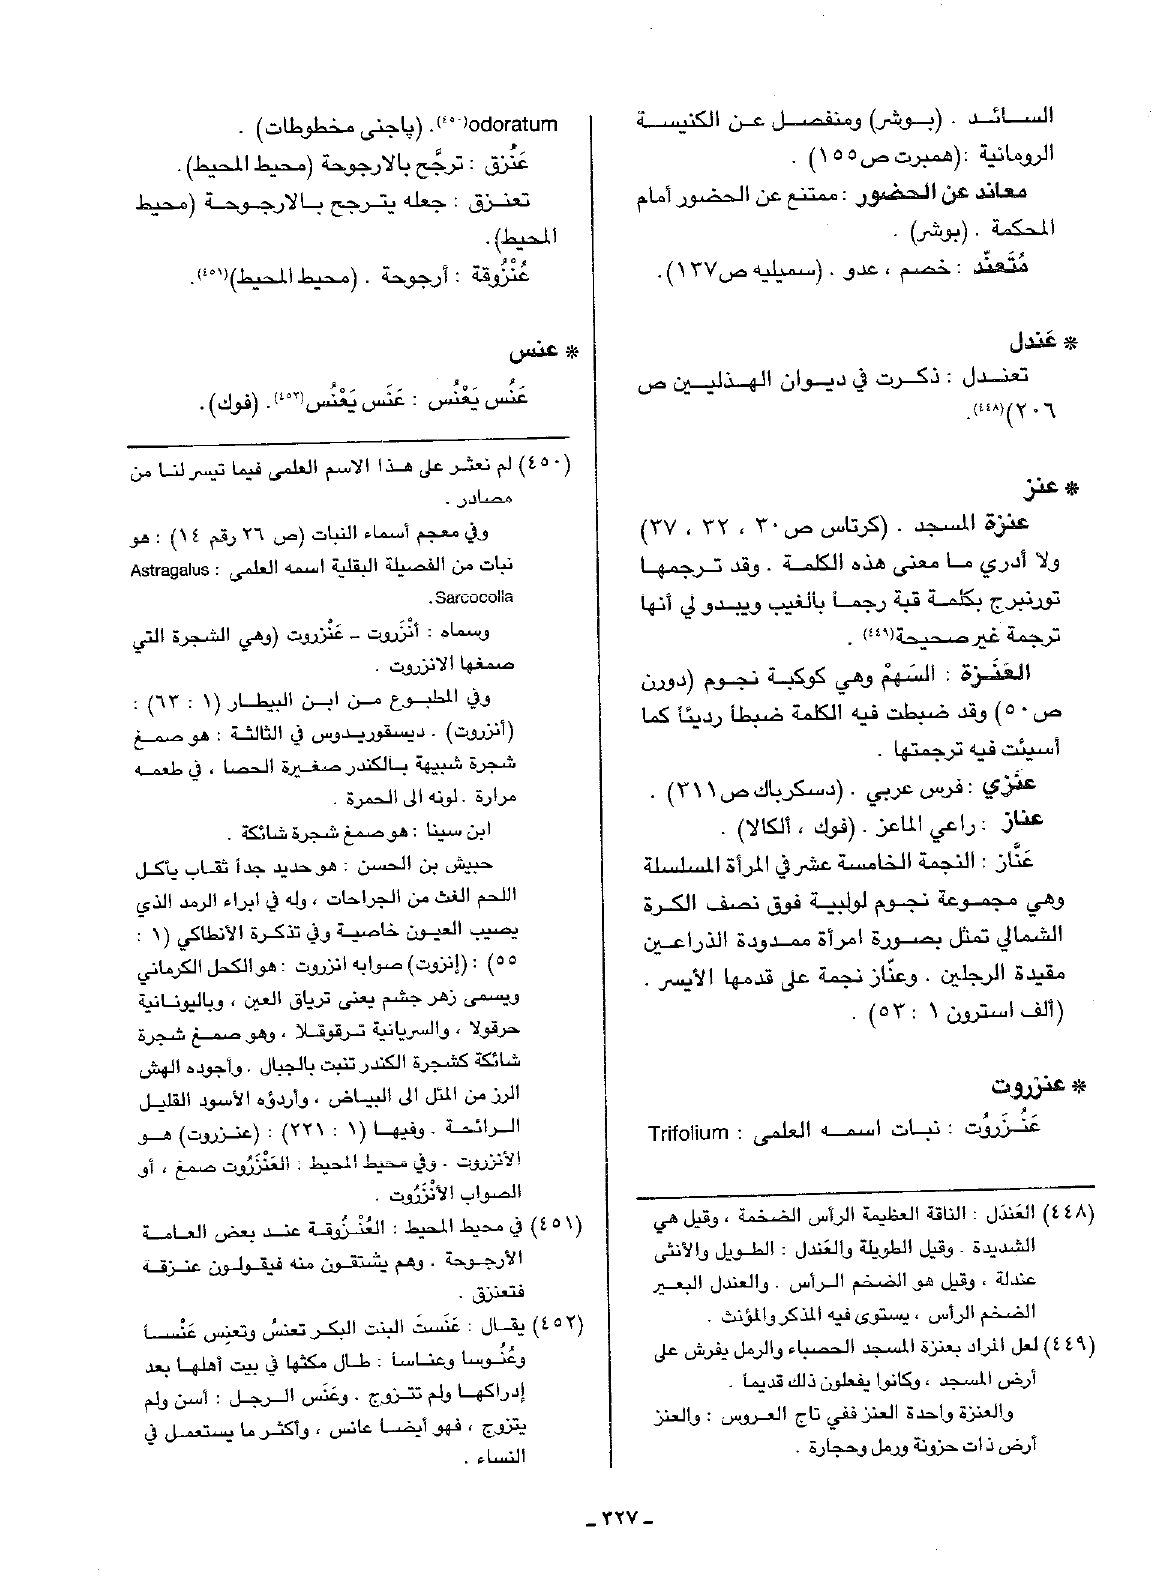 السائد . (بوشر) ومنفصل عن الكنيسة
الرومانية :(همبرت ص١٥٥) .
معاند عن الحضور : ممتنع عن الحضور أمام
المحكمة . (بوشر) .
مُتَعنِّد : خصم ، عدو . (سميليه ص١٣٧).
* عَندل
تعندل : ذكرت في ديوان الهذليين ص
٢٠٦)(٤٤٨).
* عنز
عنزة المسجد . (كرتاس ص٣٠ ، ٣٢ ، ٣٧)
ولا أدري ما معنى هذه الكلمة . وقد ترجمها
تورنبرج بكلمة قبة رجماً بالغيب ويبدو لي أنها
ترجمة غير صحيحة(٤٤٩) .
العَنَزة : السَهمْ وهي كوكبة نجوم (دورن
ص٥٠) وقد ضبطت فيه الكلمة ضبطاً رديئاً كما
أسيئت فيه ترجمتها .
عنَّزي : فرس عربي . (دسكرياك ص٣١١) .
عناز : راعي الماعز . (فوك ، ألكالا) .
عَنَّاز : النجمة الخامسة عشر في المرأة المسلسلة
وهي مجموعة نجوم لولبية فوق نصف الكرة
الشمالي تمثل بصورة امرأة ممدودة الذراعين
مقيدة الرجلين . وعنّاز نجمة على قدمها الأيسر .
(ألف استرون ١ : ٥٣) .
* عنزروت
عَنُزَروُت : نبات اسمه العلمي : Trifolium
(٤٤٨) العَندَل : الناقة العظيمة الرأس الضخمة ، وقيل هي
الشديدة . وقيل الطويلة والعَندل : الطويل والأنثى
عندلة ، وقيل هو الضخم الرأس . والعندل البعير
الضخم الرأس ، يستوي فيه المذكر والمؤنث .
(٤٤٩) لعل المراد بعنزة المسجد الحصباء والرمل يفرش على
أرض المسجد ، وكانوا يفعلون ذلك قديماً .
والعنزة واحدة العنز ففي تاج العروس : والعنز
أرض ذات حزونة ورمل وحجارة .
odoratum(٤٥٠). (پاجني مخطوطات) .
عَنُزق : ترجَّح بالارجوحة (محيط المحيط).
تعنزق : جعله يترجح بالارجوحة (محيط
المحيط).
عُنْزُوقة : أرجوحة . (محيط المحيط)(٤٥١).
* عنس
عَنُس يَعْنُس : عَنَس يَعْنُس(٤٥٢). (فوك).
(٤٥٠) لم نعثر على هذا الاسم العلمي فيما تيسر لنا من
مصادر .
وفي معجم أسماء النبات (ص ٢٦ رقم ١٤) : هو
نبات من الفصيلة البقلية اسمه العلمي : Astragalus
Sarcocolla.
وسماه : أنْزَروت - عَنْزروت (وهي الشجرة التي
صمغها الانزروت .
وفي المطبوع من ابن البيطار (١ : ٦٣) :
(أنزروت) . ديسقوريدوس في الثالثة : هو صمغ
شجرة شبيهة بالكندر صغيرة الحصا ، في طعمه
مرارة . لونه الى الحمرة .
ابن سينا : هو صمغ شجرة شائكة .
حبيش بن الحسن : هو حديد جداً ثقاب يأكل
اللحم الغث من الجراحات ، وله في ابراء الرمد الذي
يصيب العيون خاصية وفي تذكرة الأنطاكي (١ :
٥٥) : (إنزوت) صوابه انزروت : هو الكحل الكرماني
ويسمى زهر جشم يعنى ترياق العين ، وباليونانية
حرقولا ، والسريانية ترقوقلا ، وهو صمغ شجرة
شائكة كشجرة الكندر تنبت بالجبال . وأجوده الهش
الرز من المثل الى البياض ، وأردؤه الأسود القليل
الرائحة . وفيها (١ : ٢٢١) : (عنزروت) هو
الأنزروت . وفي محيط المحيط : العَنْزَرُوت صمغ ، أو
الصواب الأنْزَرُوت .
(٤٥١) في محيط المحيط : العُنْزُوقة عند بعض العامة
الأرجوحة . وهم يشتقون منه فيقولون عنزقه
فتعنزق .
(٤٥٢) يقال : عَنَستَ البنت البكر تعنسُ وتعنِس عَنْساً
وعُنُوسا وعناسا : طال مكثها في بيت أهلها بعد
إدراكها ولم تتزوج . وعَنَس الرجل : أسن ولم
يتزوج ، فهو أيضا عانس ، وأكثر ما يستعمل في
النساء .
ـ ٣٢٧ ـ